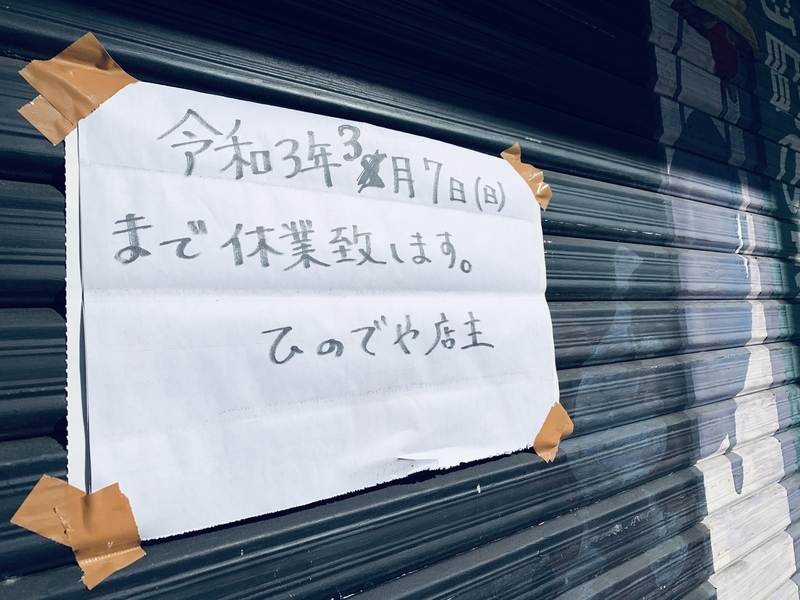 令和3年3月7日(日)
まで休業致します。
ひのでや店主